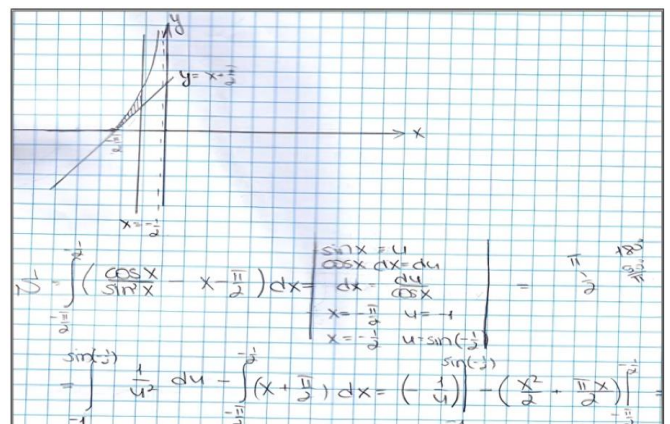 y
y = x - π/2
x
-π/2
x = -1/2
P = ∫_{-π/2}^{-1/2} ( cosx/sin²x - x - π/2 ) dx = | sinx = u
cosx dx = du
dx = du/cosx
x = -π/2 u = -1
x = -1/2 u = sin(-1/2) | = π 180°
1/2
= ∫_{-1}^{sin(-1/2)} 1/u² du - ∫_{-π/2}^{-1/2} (x + π/2) dx = (-1/u) |_{-1}^{sin(-1/2)} - (x²/2 + πx/2) |_{-π/2}^{-1/2} =